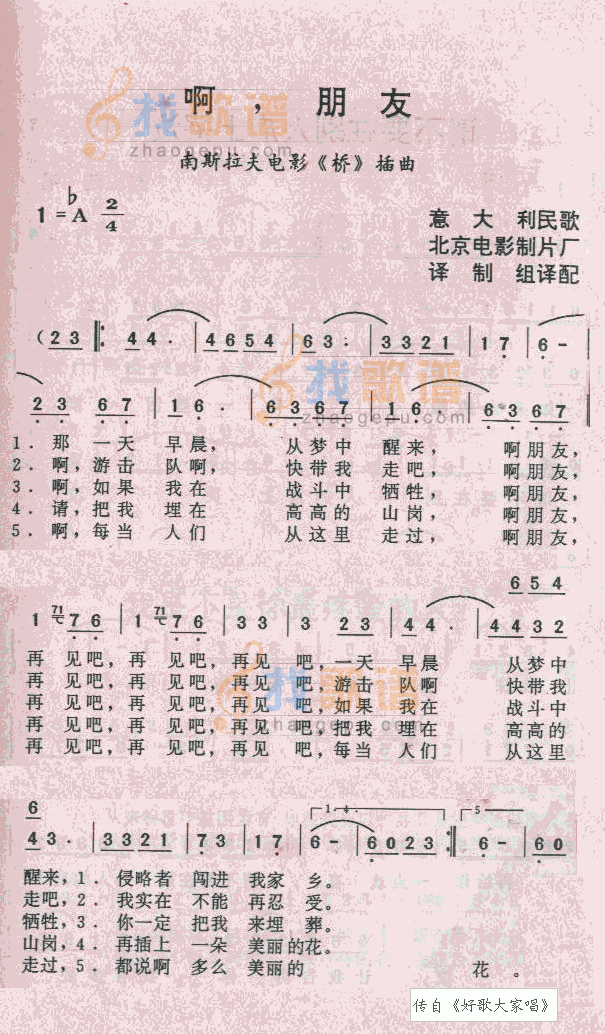 啊，朋友
找歌谱
zhaogepu.com
南斯拉夫电影《桥》插曲
1=♭A 2/4
意大利民歌
北京电影制片厂
译制组译配
(23 ‖: 44· | 4654 | 63· | 3321 | 17 | 6-
23 67 | 16· | 6367 | 16· | 6367
1. 那一天早晨， 从梦中醒来， 啊朋友，
2. 啊，游击队啊， 快带我走吧， 啊朋友，
3. 啊，如果我在 战斗中牺牲， 啊朋友，
4. 请，把我埋在 高高的山岗， 啊朋友，
5. 啊，每当人们 从这里走过， 啊朋友，
654
1 71 76 | 1 71 76 | 33 | 3 23 | 44· | 4432
再见吧，再见吧，再见吧，一天早晨 从梦中
再见吧，再见吧，再见吧，游击队啊 快带我
再见吧，再见吧，再见吧，如果我在 战斗中
再见吧，再见吧，再见吧，把我埋在 高高的
再见吧，再见吧，再见吧，每当人们 从这里
6 1-4. 5
43· | 3321 | 73 | 17 | 6- | 6023 :‖ 6- | 60
醒来，1. 侵略者闯进我家乡。
走吧，2. 我实在不能再忍受。
牺牲，3. 你一定把我来埋葬。
山岗，4. 再插上一朵美丽的花。
走过，5. 都说啊多么美丽的 花。
传自《好歌大家唱》